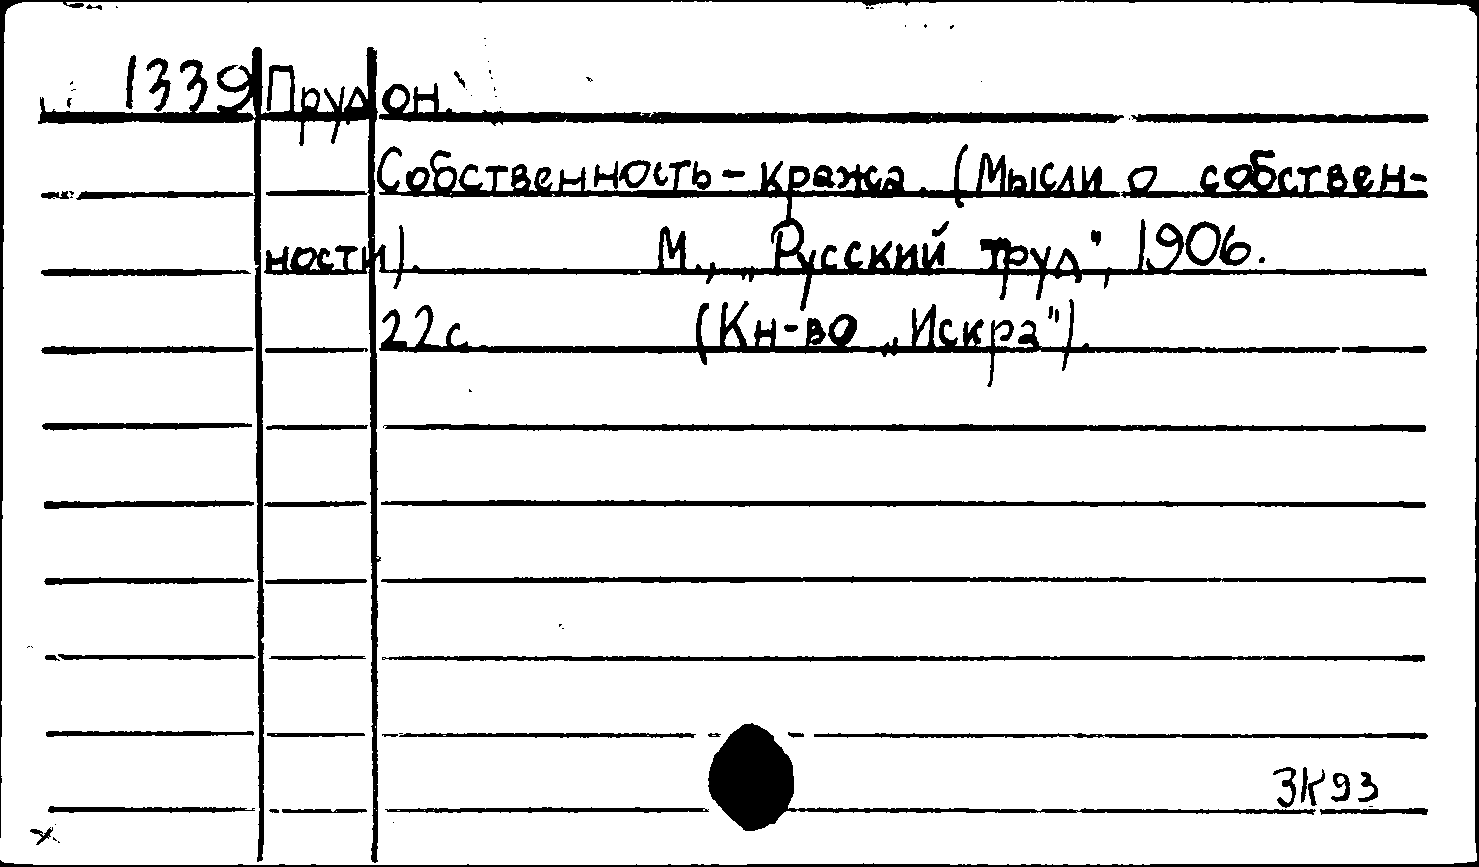 1339 Прудон.
Собственность - кража. (Мысли о собствен-
ности). М., „Русский труд", 1906.
22с. (Кн-во „Искра").
3К93